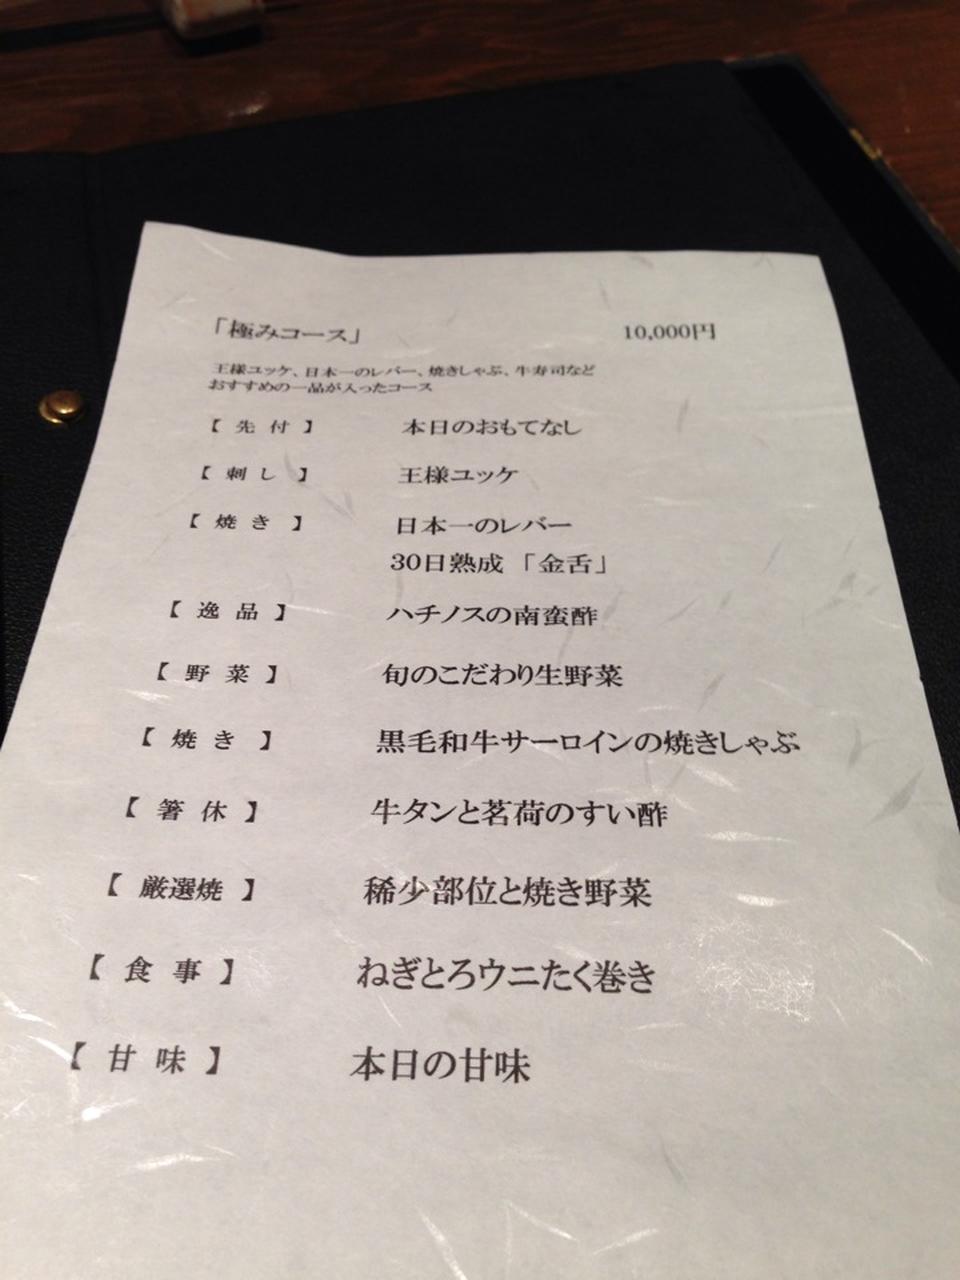 「極みコース」 10,000円
王様ユッケ、日本一のレバー、焼きしゃぶ、牛寿司など
おすすめの一品が入ったコース
【 先 付 】 本日のおもてなし
【 刺 し 】 王様ユッケ
【 焼 き 】 日本一のレバー
30日熟成 「金舌」
【 逸 品 】 ハチノスの南蛮酢
【 野 菜 】 旬のこだわり生野菜
【 焼 き 】 黒毛和牛サーロインの焼きしゃぶ
【 箸 休 】 牛タンと茗荷のすい酢
【 厳選焼 】 稀少部位と焼き野菜
【 食 事 】 ねぎとろウニたく巻き
【 甘 味 】 本日の甘味